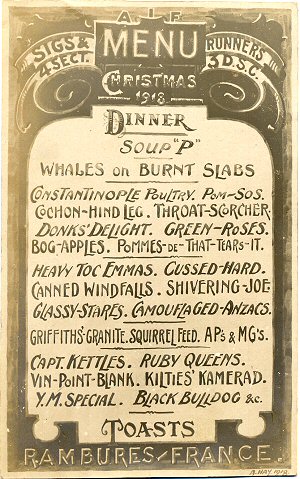 A I F
SIGS & 4 SECT.
MENU
RUNNERS 3 D.S.C.
CHRISTMAS
1918
DINNER
SOUP "P"
WHALES ON BURNT SLABS
CONSTANTINOPLE POULTRY. POM-SOS.
COCHON-HIND LEG. THROAT-SCORCHER
DONKS' DELIGHT. GREEN-ROSES.
BOG-APPLES. POMMES-DE-THAT-TEARS-IT.
HEAVY TOC EMMAS. CUSSED-HARD.
CANNED WINDFALLS. SHIVERING-JOE.
GLASSY-STARES. CAMOUFLAGED-ANZACS.
GRIFFITHS' GRANITE. SQUIRREL FEED. AP's & MG's.
CAPT. KETTLES. RUBY QUEENS.
VIN-POINT-BLANK. KILTIES' KAMERAD.
Y.M. SPECIAL. BLACK BULLDOG &c.
TOASTS
RAMBURES-FRANCE.